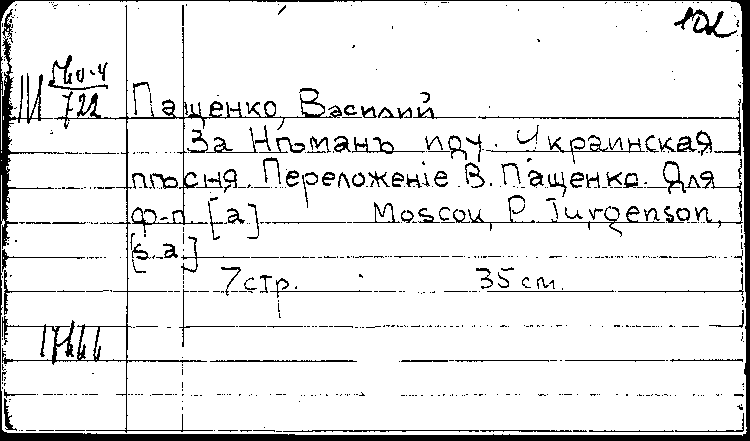 102
722
Пащенко, Василий
За Нѣманъ иду. Украинская
пѣсня. Переложеніе В. Пащенко. Для
ф-п. [a] Moscou, P. Jurgenson,
[s.a.]
7 стр. 35 cm.